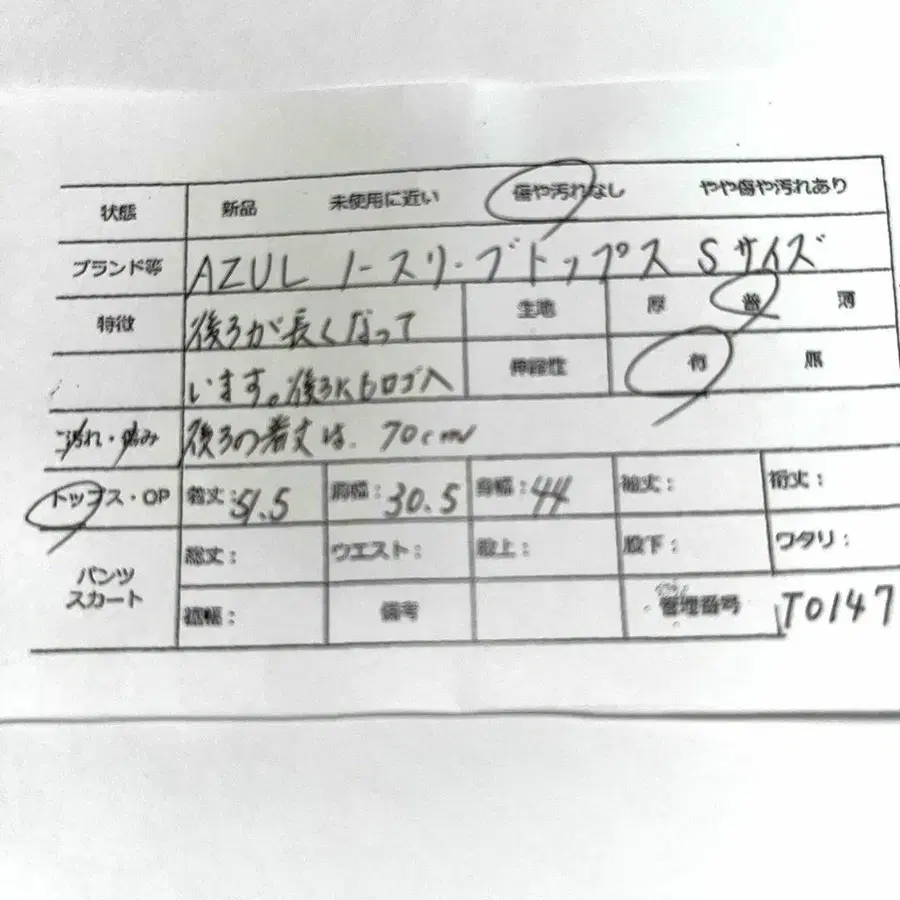 状態 新品 未使用に近い 傷や汚れなし やや傷や汚れあり
ブランド等 AZUL ノースリーブトップス Sサイズ
特徴 後ろが長くなって 生地 厚 普 薄
います。後ろにもロゴ入 伸縮性 有 無
汚れ・傷み 後ろの着丈は、70cm
トップス・OP 着丈:51.5 肩幅:30.5 身幅:44 袖丈: 裄丈:
パンツ スカート 総丈: ウエスト: 股上: 股下: ワタリ:
裾幅: 備考 管理番号 T0147